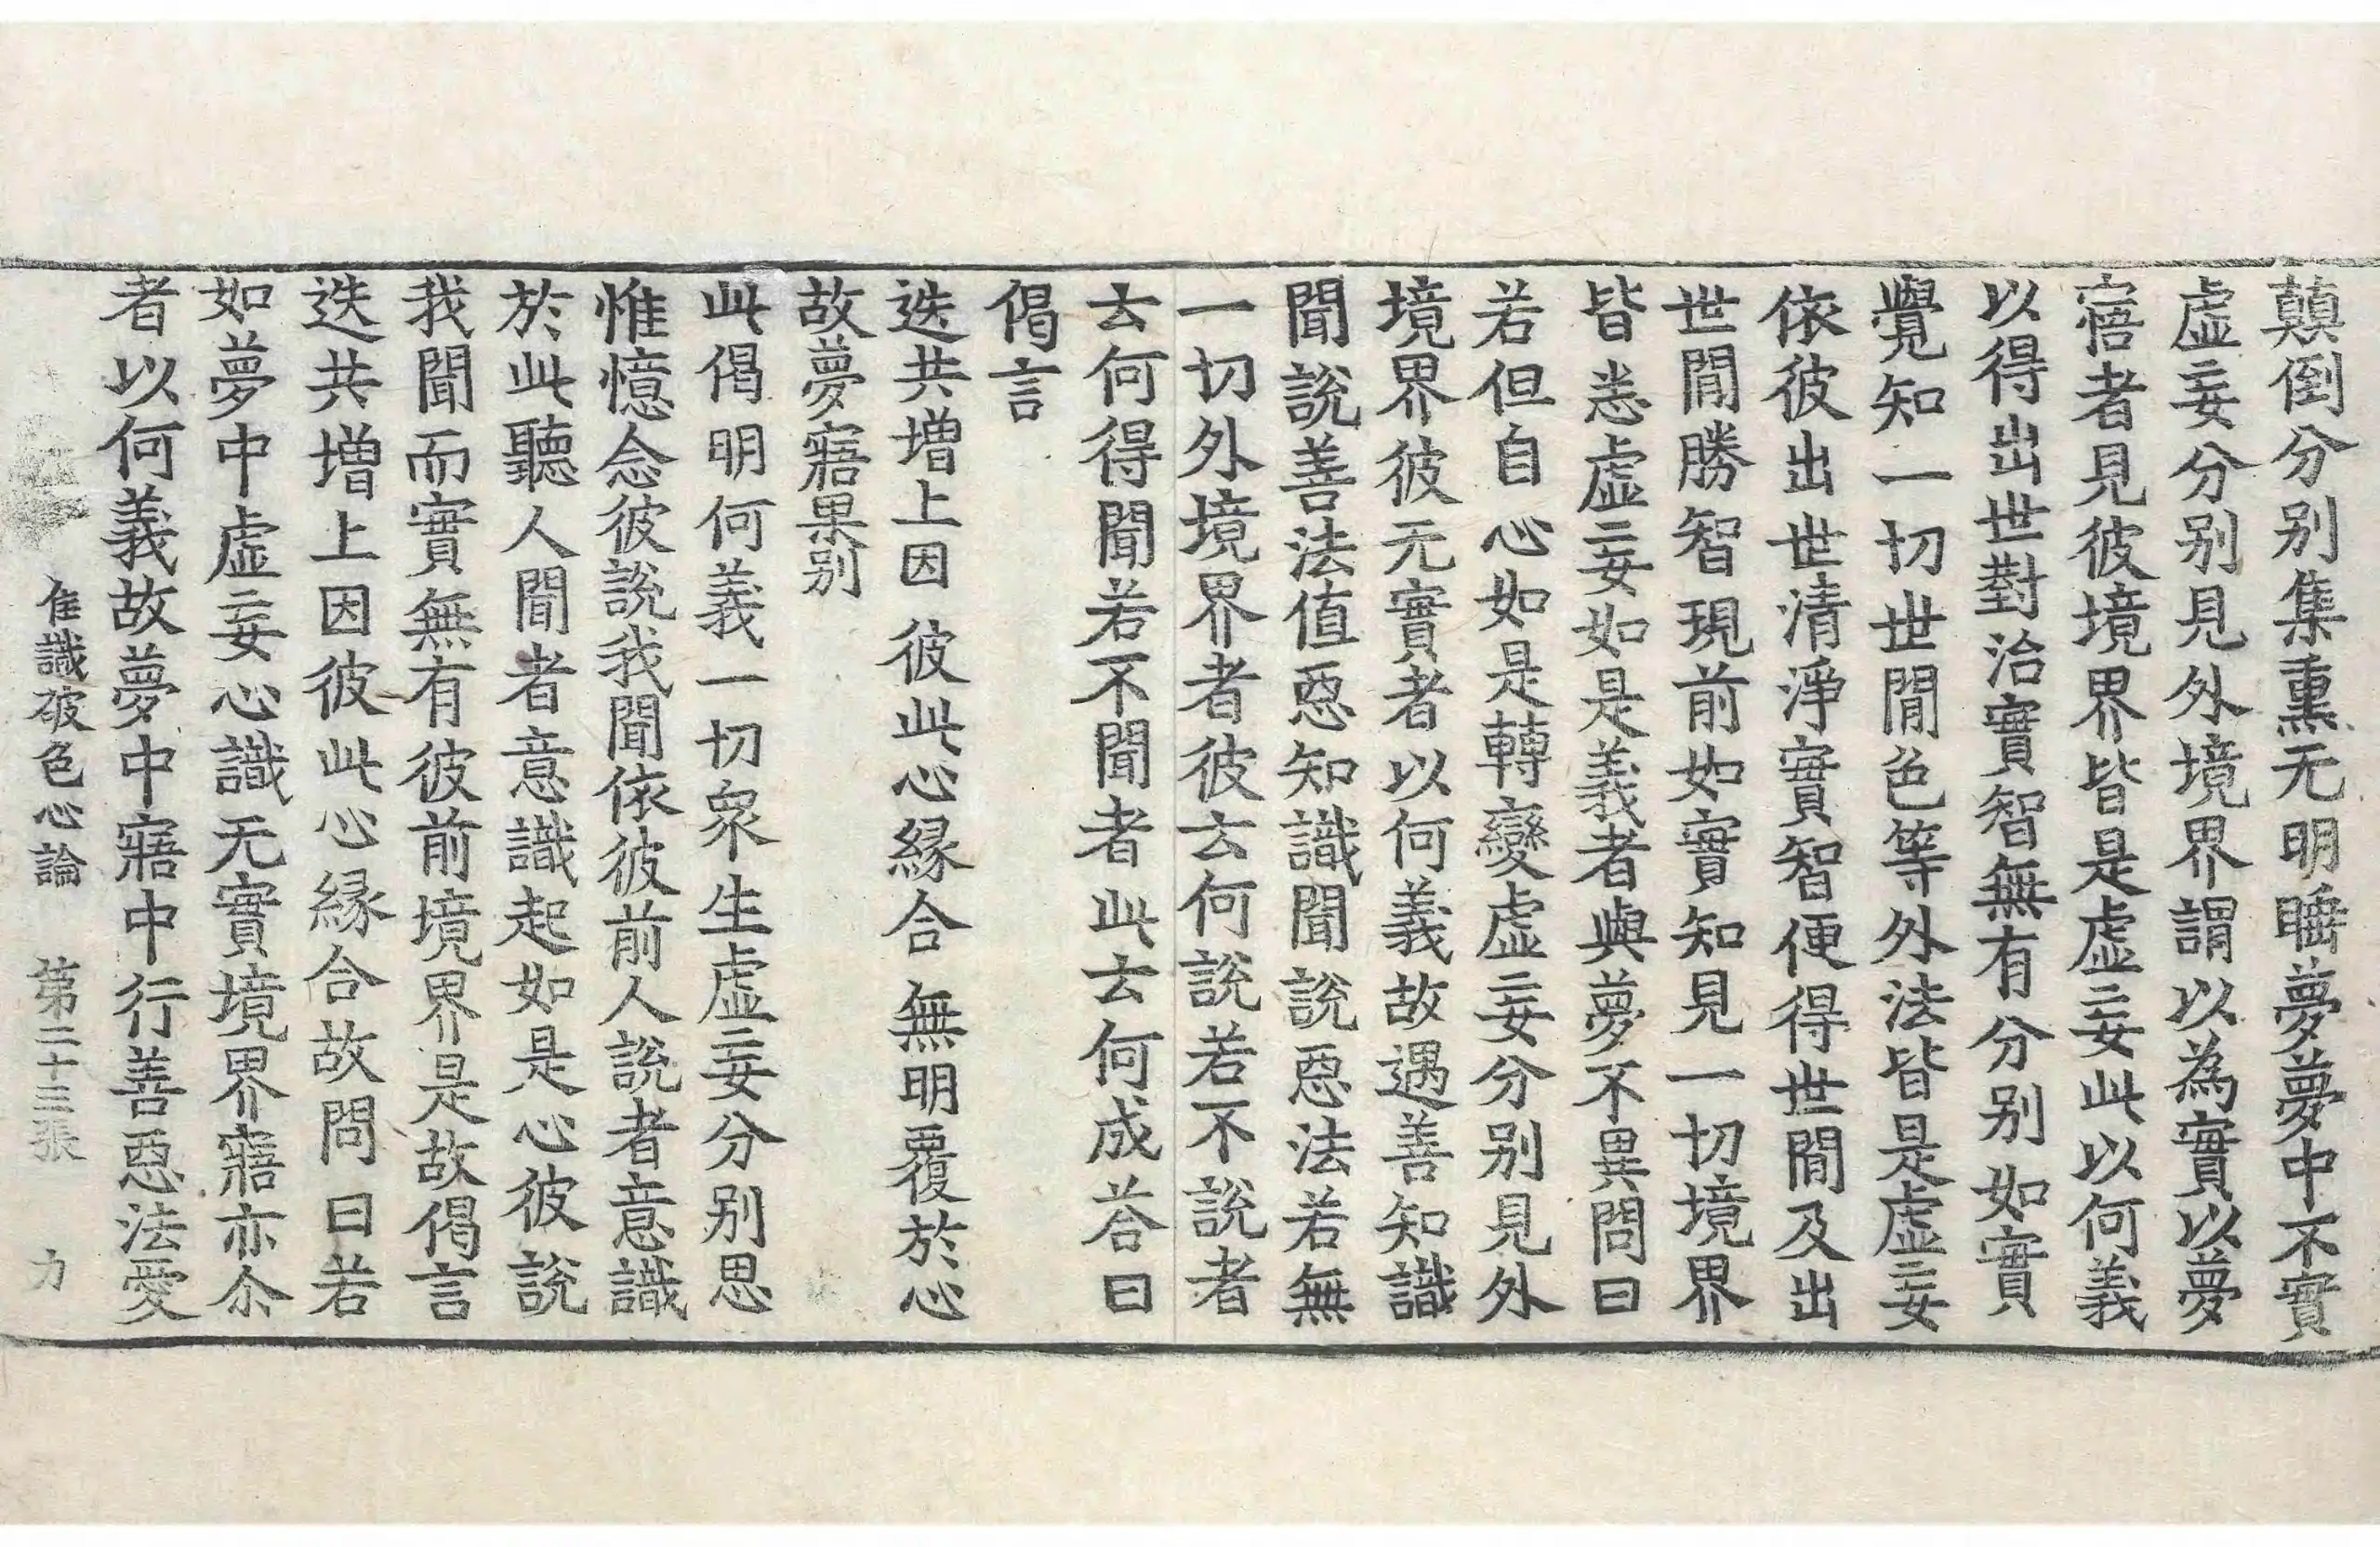 顛倒分别集熏无明睡夢夢中不實
虛妄分别見外境界謂以為實以夢
寤者見彼境界皆是虛妄此以何義
以得出世對治實智無有分别如實
覺知一切世閒色等外法皆是虛妄
依彼出世清淨實智便得世閒及出
世閒勝智現前如實知見一切境界
皆悉虛妄如是義者與夢不異問曰
若但自心如是轉變虛妄分别見外
境界彼无實者以何義故遇善知識
聞說善法值惡知識聞說惡法若無
一切外境界者彼云何說若不說者
云何得聞若不聞者此云何成荅曰
偈言
迭共增上因 彼此心緣合 無明覆於心
故夢寤果别
此偈明何義一切衆生虛妄分别思
惟憶念彼說我聞依彼前人說者意識
於此聽人聞者意識起如是心彼說
我聞而實無有彼前境界是故偈言
迭共增上因彼此心緣合故問曰若
如夢中虛妄心識无實境界寤亦尒
者以何義故夢中寤中行善惡法愛
唯識破色心論 第二十三張 力